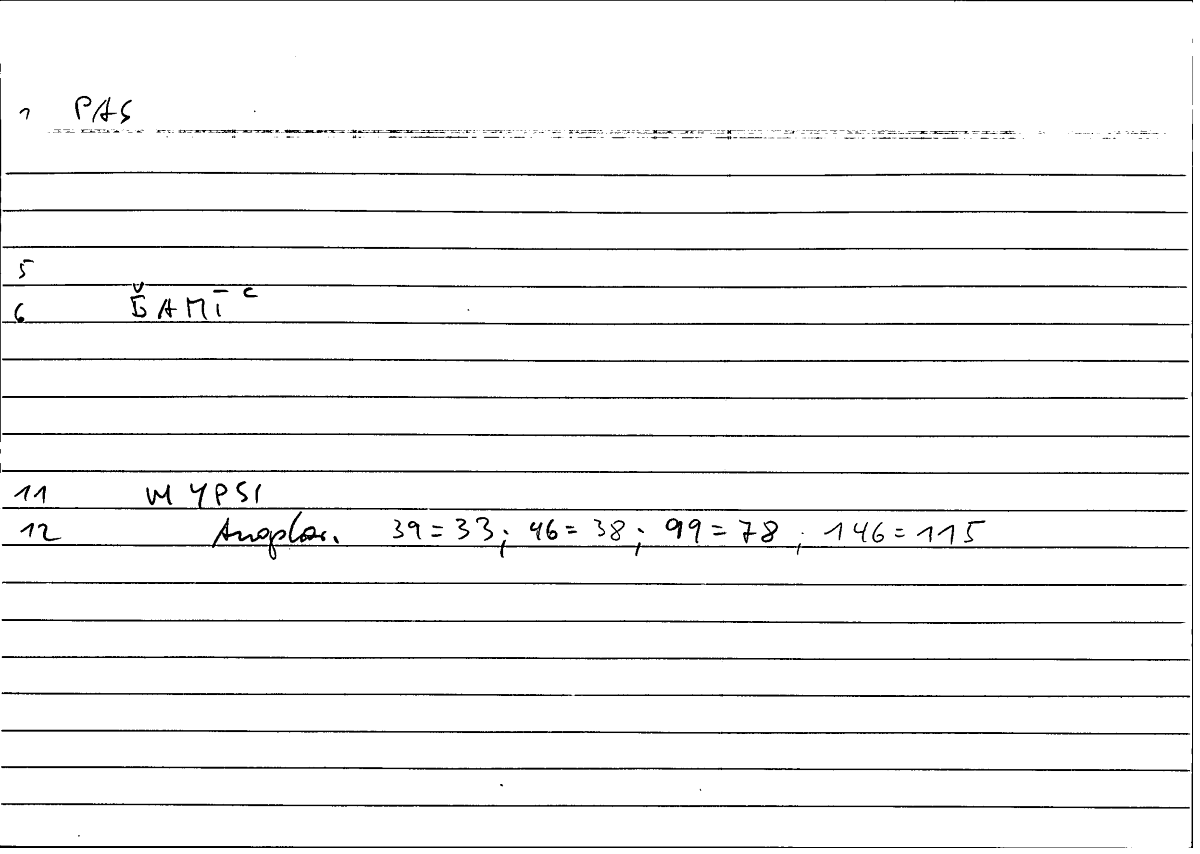 1 PAS
5
6 ǦAMĪᶜ
11
12 39 = 33; 46 = 38; 99 = 78; 146 = 115